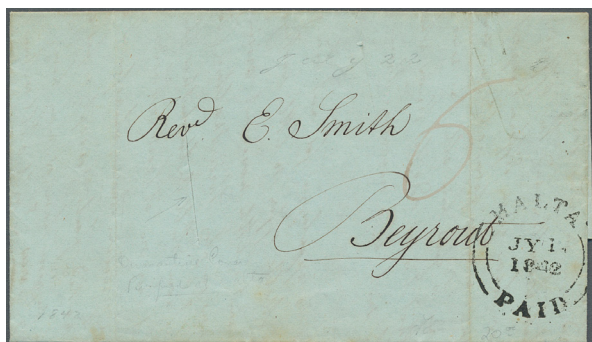 July 22
6
Revd E. Smith
Beyrout
MALTA
JY 1
1842
PAID
1842